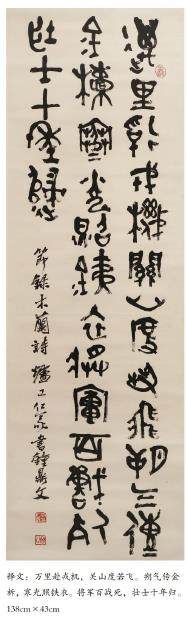 萬里赴戎機關山度若飛朔气傳
金柝寒光照鐵衣將軍百戰死
壯士十年歸
節錄木蘭詩 工仁篆書鐘鼎文
释文：万里赴戎机，关山度若飞。朔气传金
柝，寒光照铁衣。将军百战死，壮士十年归。
138cm×43cm